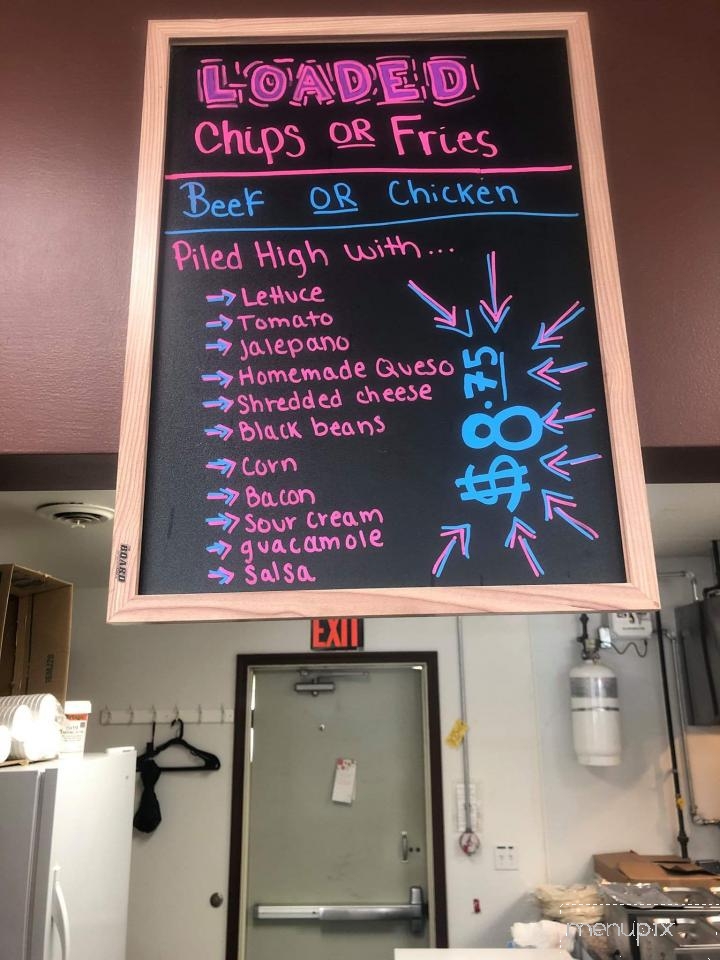 LOADED
Chips OR Fries
Beef OR Chicken
Piled High with...
→ Lettuce
→ Tomato
→ Jalepano
→ Homemade Queso
→ Shredded cheese
→ Black beans
→ Corn
→ Bacon
→ Sour cream
→ guacamole
→ Salsa
$8.75
BOARD
EXIT
menupix